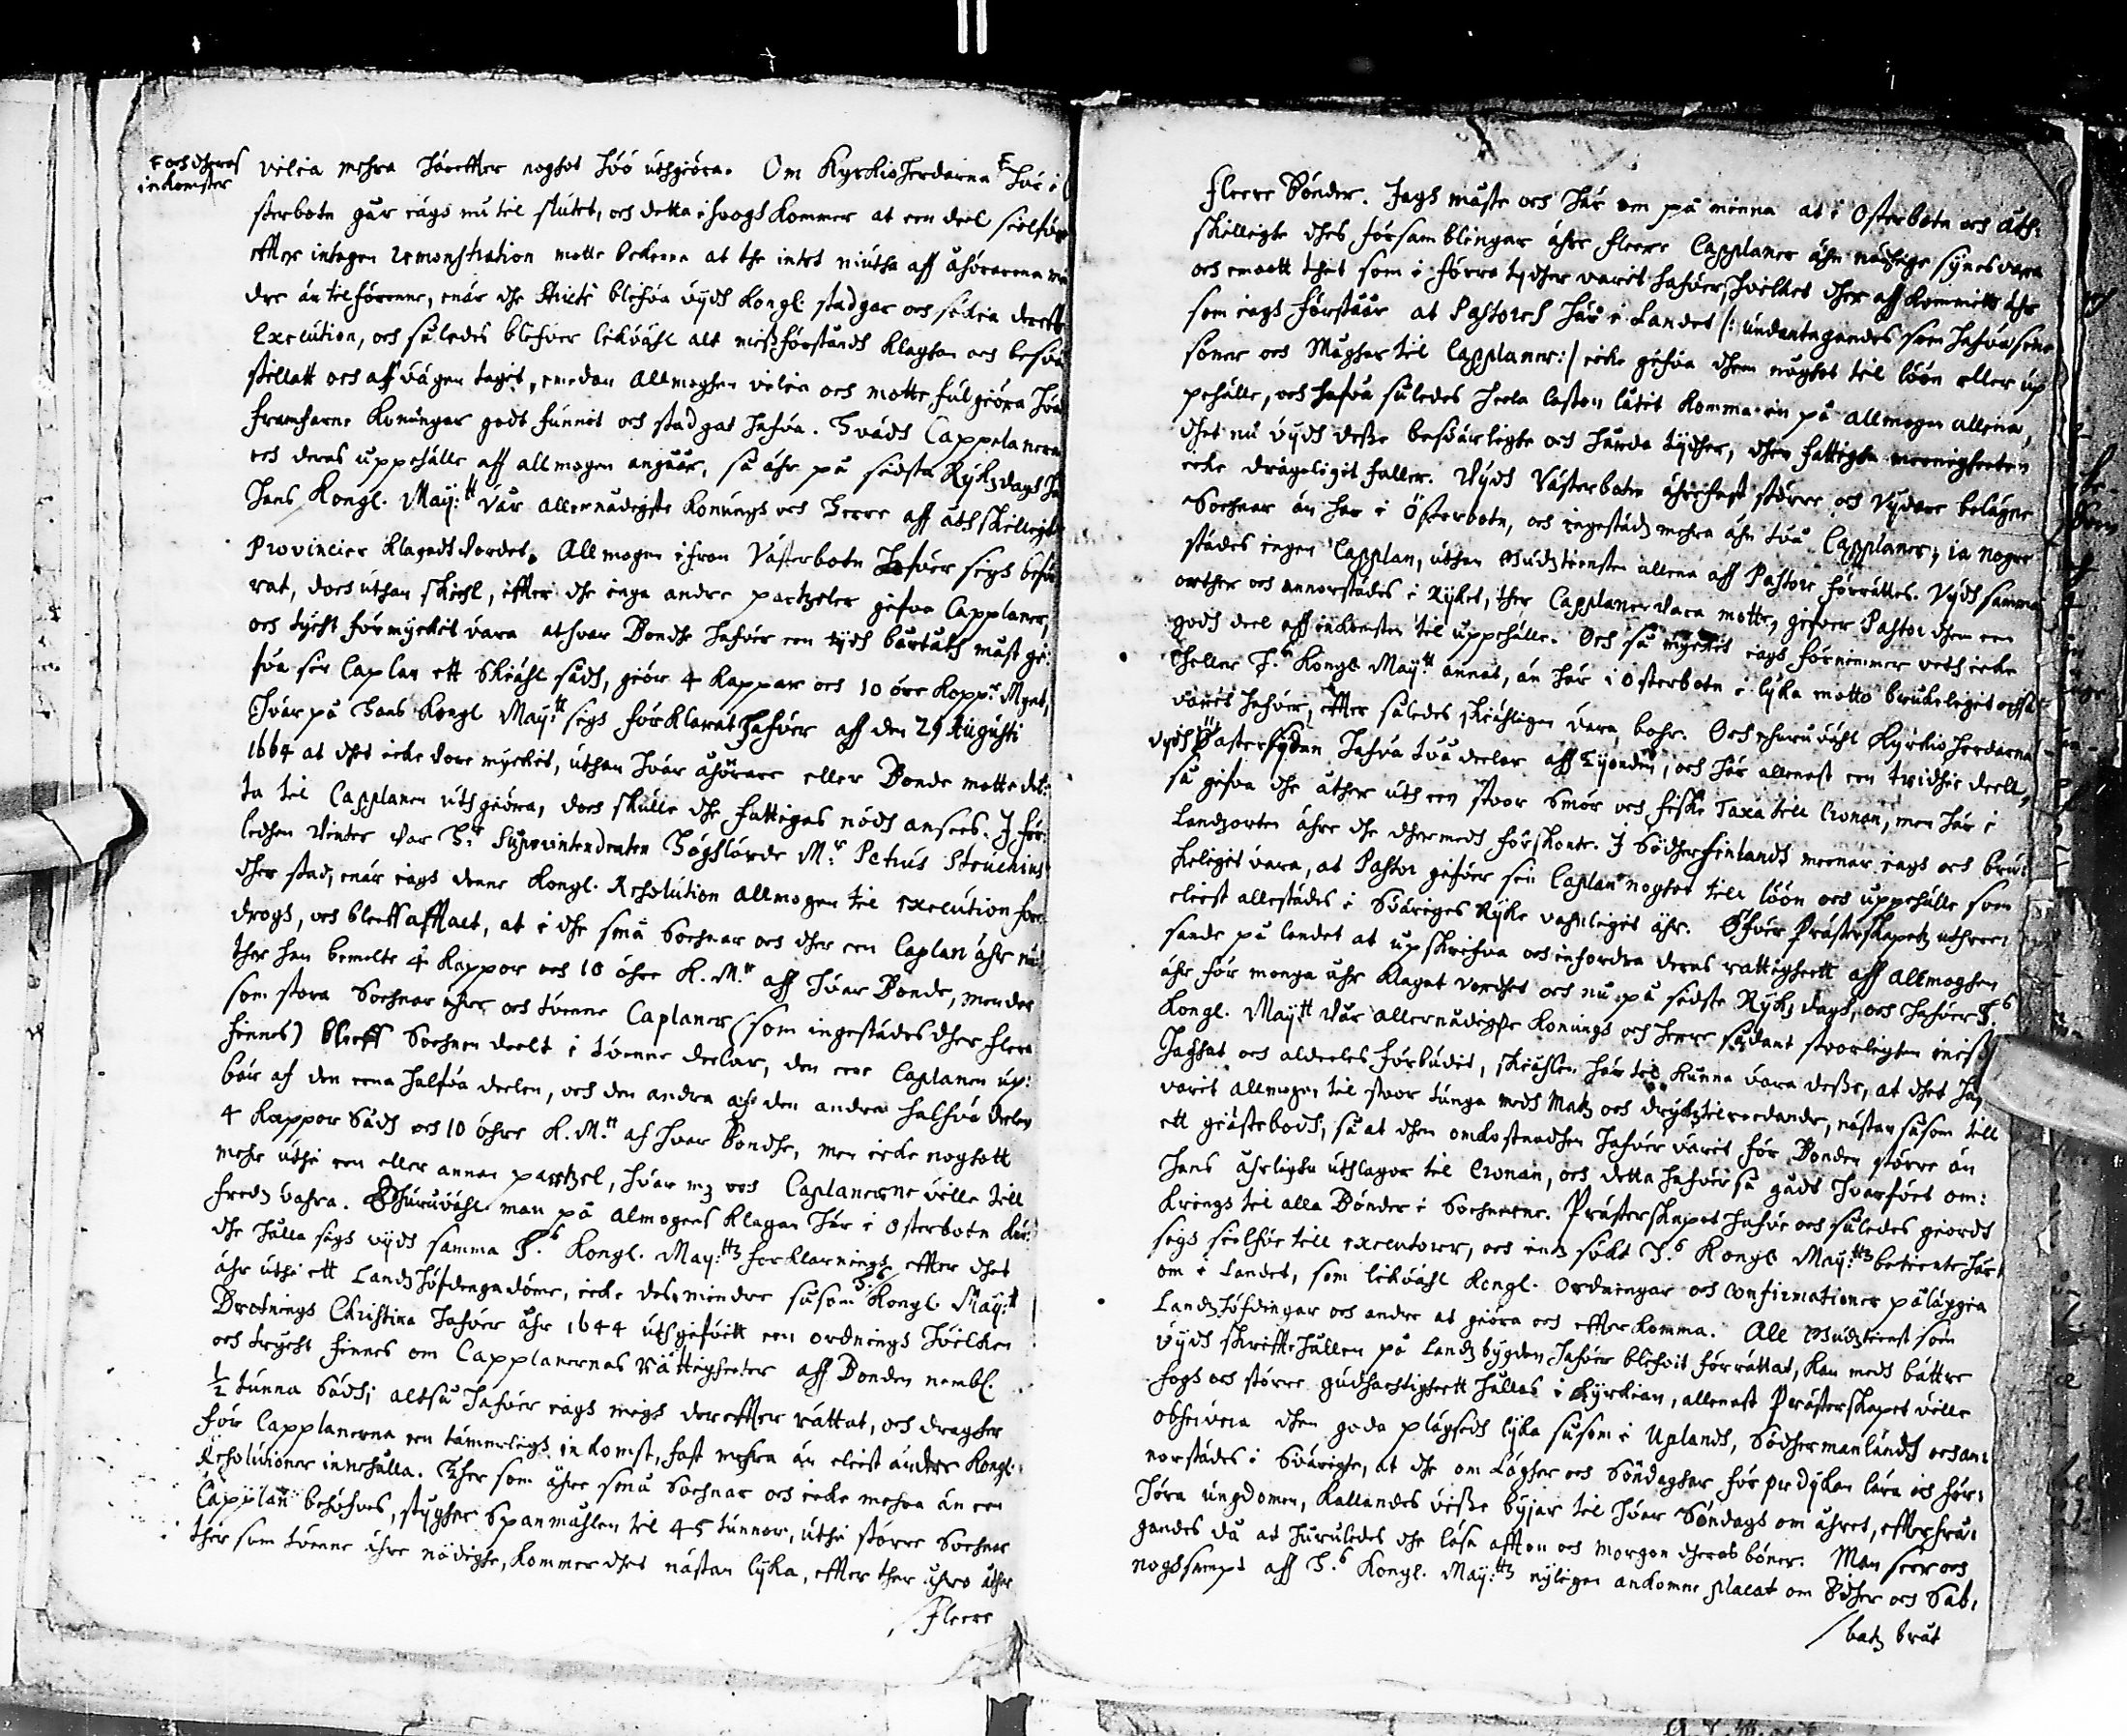 F och theras
inkomster
velia mehra härefter noghot här uthgiöra. Om Kyrkioherdarna F här i
sterbotn gär iags nu til slutet, och detta ihvogh kommer at een deel sielfva
effter intagen remonstration motte bekenna at the intet niutha aff åhörarena
dre än tilförenne, enär dhe blifva vijdh Kongl. stadgar och
Execution, och således blifver lickväl alt missförståndh klaghan och besvär
stillatt och aff vägen taget, emedan Allmoghen velia och motte fulgiöra hvad
framfarne Konungar godt funnit och stadgat hafva. Hvadh Cappelanerna
och deras uppehälle aff allmogen angåår, så ähr på sidsta Ryksdagh
Hans Kongl. May:tt Vår allernådigste Konungh och Herre aff åthskillighe
Provincier klagadt vordet. Allmogen ifrån Västerbotn hafver sigh besvä
rat, doch uthan skiehl, effter dhe inga andre partzeler gifva Capplaner,
och tycht för myckit vara at hvar Bondhe hafver een tijdh bårtåth måst gi
fva sin Caplan ett skiähl sädh, giör 4 kappar och 10 öre Kopp:r Mynt,
Hvar på Hans Kongl May:tt sigh förklarat hafver aff den 29 Augusti
1664 at dhet icke vore myckit, uthan hvar åhörare eller Bonde motte det
ta til Capplanen uthgiöra, doch skulle dhe fattigas nödh ansees. I för
ledhen Vinter var H:r Superintendenten Höghlärde M:r Petrus Steuchius
dher stad, enär iagh denne Kongl. Resolution Allmogen til execution före
drogh, och bleef aftalt, at i dhe små Sochnar och dher een Caplan ähr
ther han bemelte 4 kappor och 10 öhre K. M:tt aff hvar Bonde, men der
som stora Sochnar ähre och tvenne Caplaner (som ingestädes dher flera
finnes) bleeff Sochnen deelt i tvenne deelar, den ene Caplanen up
bär af den eena halfva deelen, och den andra af den andra halfva delen
4 kappor Sädh och 10 öhre K. M:tt af hvar Bondhe, men icke noghott
mehr uthi een eller annan partzel, hvar och Caplanerne ville till
fredz vahra. Ehuruväl man på Almogens klagan här i Österbotn
dhe hålla sigh vijdh samma H:s Kongl. May:ttz förklarningh effter dhet
ähr uthi ett Landzhöfdingedöme, icke desmindre såsom H:s Kongl. May:tt
Drotningh Christina hafver åhr 1644 uthgifvitt een ordningh hvilken
och trycht finnes om Capplanernas rättigheeter aff Bonden nembl.
½ tunna Sädh; altså hafver iagh migh der effter rättat, och dragher
för Capplanerna een tämmeligh inkomst, fast mehra än eliest andre Kongl.
Resolutioner innehålla. Ther som ähre små Sochnar och icke mehra än een
Capplan behöfves, stygher Spanmåhlen til 45 tunnor, uthi större Sochnar
ther som tvenne ähre nödighe, kommer dhet nästan lyka, effter ther ähre åther
/ fleere
fleere Bönder. Jagh måste och här om på minna at i Österbotn och åth-
skillighe dhes församblingar ähre fleere Capplaner ähn nödige synes vara
och emoott thet som i förra tydher varit hafver, hvilket dher aff kommitt ähr
som iagh förståår at Pastores här i Landet /: undantagandes som hafva sine
söner och Mågher til Capplaner:/ icke gifva dhem noghot til löön eller up
pehälle, och hafva således heela lasten låtit komma in på allmogen allena,
dhet nu vijdh desse besvärlighe och hårda tijdher, dhen fattighe meenigheeten
icke drägeligit faller. Vijdh Västerbotn ähre fast större och vydare belägne
Sochnar än har i Österbotn, och ingestädz mehra ähn två Capplaner, ia nogre
städes ingen Capplan, uthan Gudztiensten allena aff Pastore förrättes. Vijdh samma
orther och annorstädes i Ryket, ther Capplaner vara motte, gifver Pastor dhem een
godh deel aff inkomsten til uppehälle. Och så myckit iagh förnimmer veth icke
heller H:s Kongl. May:tt annat, än här i Österbotn i lyka motto brukeligit ochså
varit hafver, effter således skiähligen vara, bohr. Och ehuruväl Kyrkioherdarna
vydh Västersydan hafva två deelar aff Tijonden, och här allenast een tridhie deell,
så gifva dhe åther uth een stoor Smör och fiske Taxa till Cronan, men här i
Landzorten ähre dhe dhermedh förskonte. I Södherfinlandh meenar iagh och bru-
keligit vara, at Pastor gifver sin Caplan noghot till löön och uppehälle som
eliest allestädes i Sväriges Ryke vahnligit ähr. Öfver Prästerskapetz uthree-
sande på landet at upskrifva och infordra deras rättigheett aff Allmoghen
ähr för monga åhr klagat vordhet och nu på sidste Ryksdagh, och hafver H:s
Kongl. May:tt Vår allernådigste Konungh och Herre sådant storligen
haghat och aldeeles förbudit, skiählen här til kunna vara desse, at dhet
varit allmogen til stoor tunga medh Matz och dryckz tilreedande, nästan såsom till
ett giästebodh, så at dhen omkostnadhen hafver varit för Bonden större än
hans åhrlighe uthlagor til Cronan, och detta hafver så gådt hvarfvet om-
kringh til alla Bönder i Sochnerne. Prästerskapet hafver och således giordt
sigh sielfve till executorer, och intz sökt H:s Kongl. May:ttz betiente här
om i Landet, som likväl Kongl. Ordningar och Confirmationer påläggia
Landzhöfdingar och andre at giöra och effterkomma. All Gudztienst som
vijdh skrifftehållen på Landzbygden hafver blifvit förrättat, kan medh bättre
fogh och större gudhachtigheett hållas i Kyrkian, allenast Prästerskapet ville
observera dhen goda plägsedh lyka såsom i Uplandh, Södhermanlandh och an-
norstädes i Svärighe, at dhe om Lögher och Söndaghar för predykan lära och för-
höra ungdomen, kallandes visse byjar til hvar Söndagh om åhret, effterfrå-
gandes då at huruledes dhe läsa aftton och morgon dheras böner. Man seer och
noghsampt aff H:s Kongl. May:ttz nyligen ankomne placat om Edher och Sab-
/ batz brut